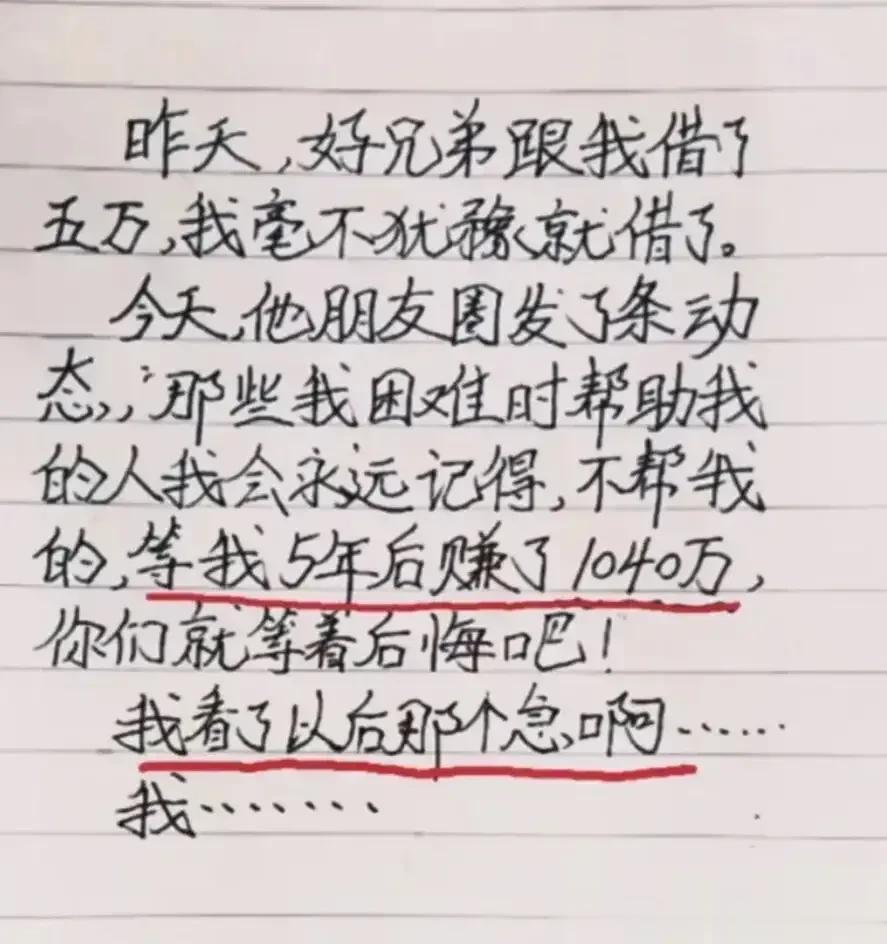 昨天,好兄弟跟我借了
五万,我毫不犹豫就借了。
今天,他朋友圈发了条动
态,:那些我困难时帮助我
的人我会永远记得,不帮我
的,等我5年后赚了1040万,
你们就等着后悔吧!
我看了以后那个急啊……
我…….